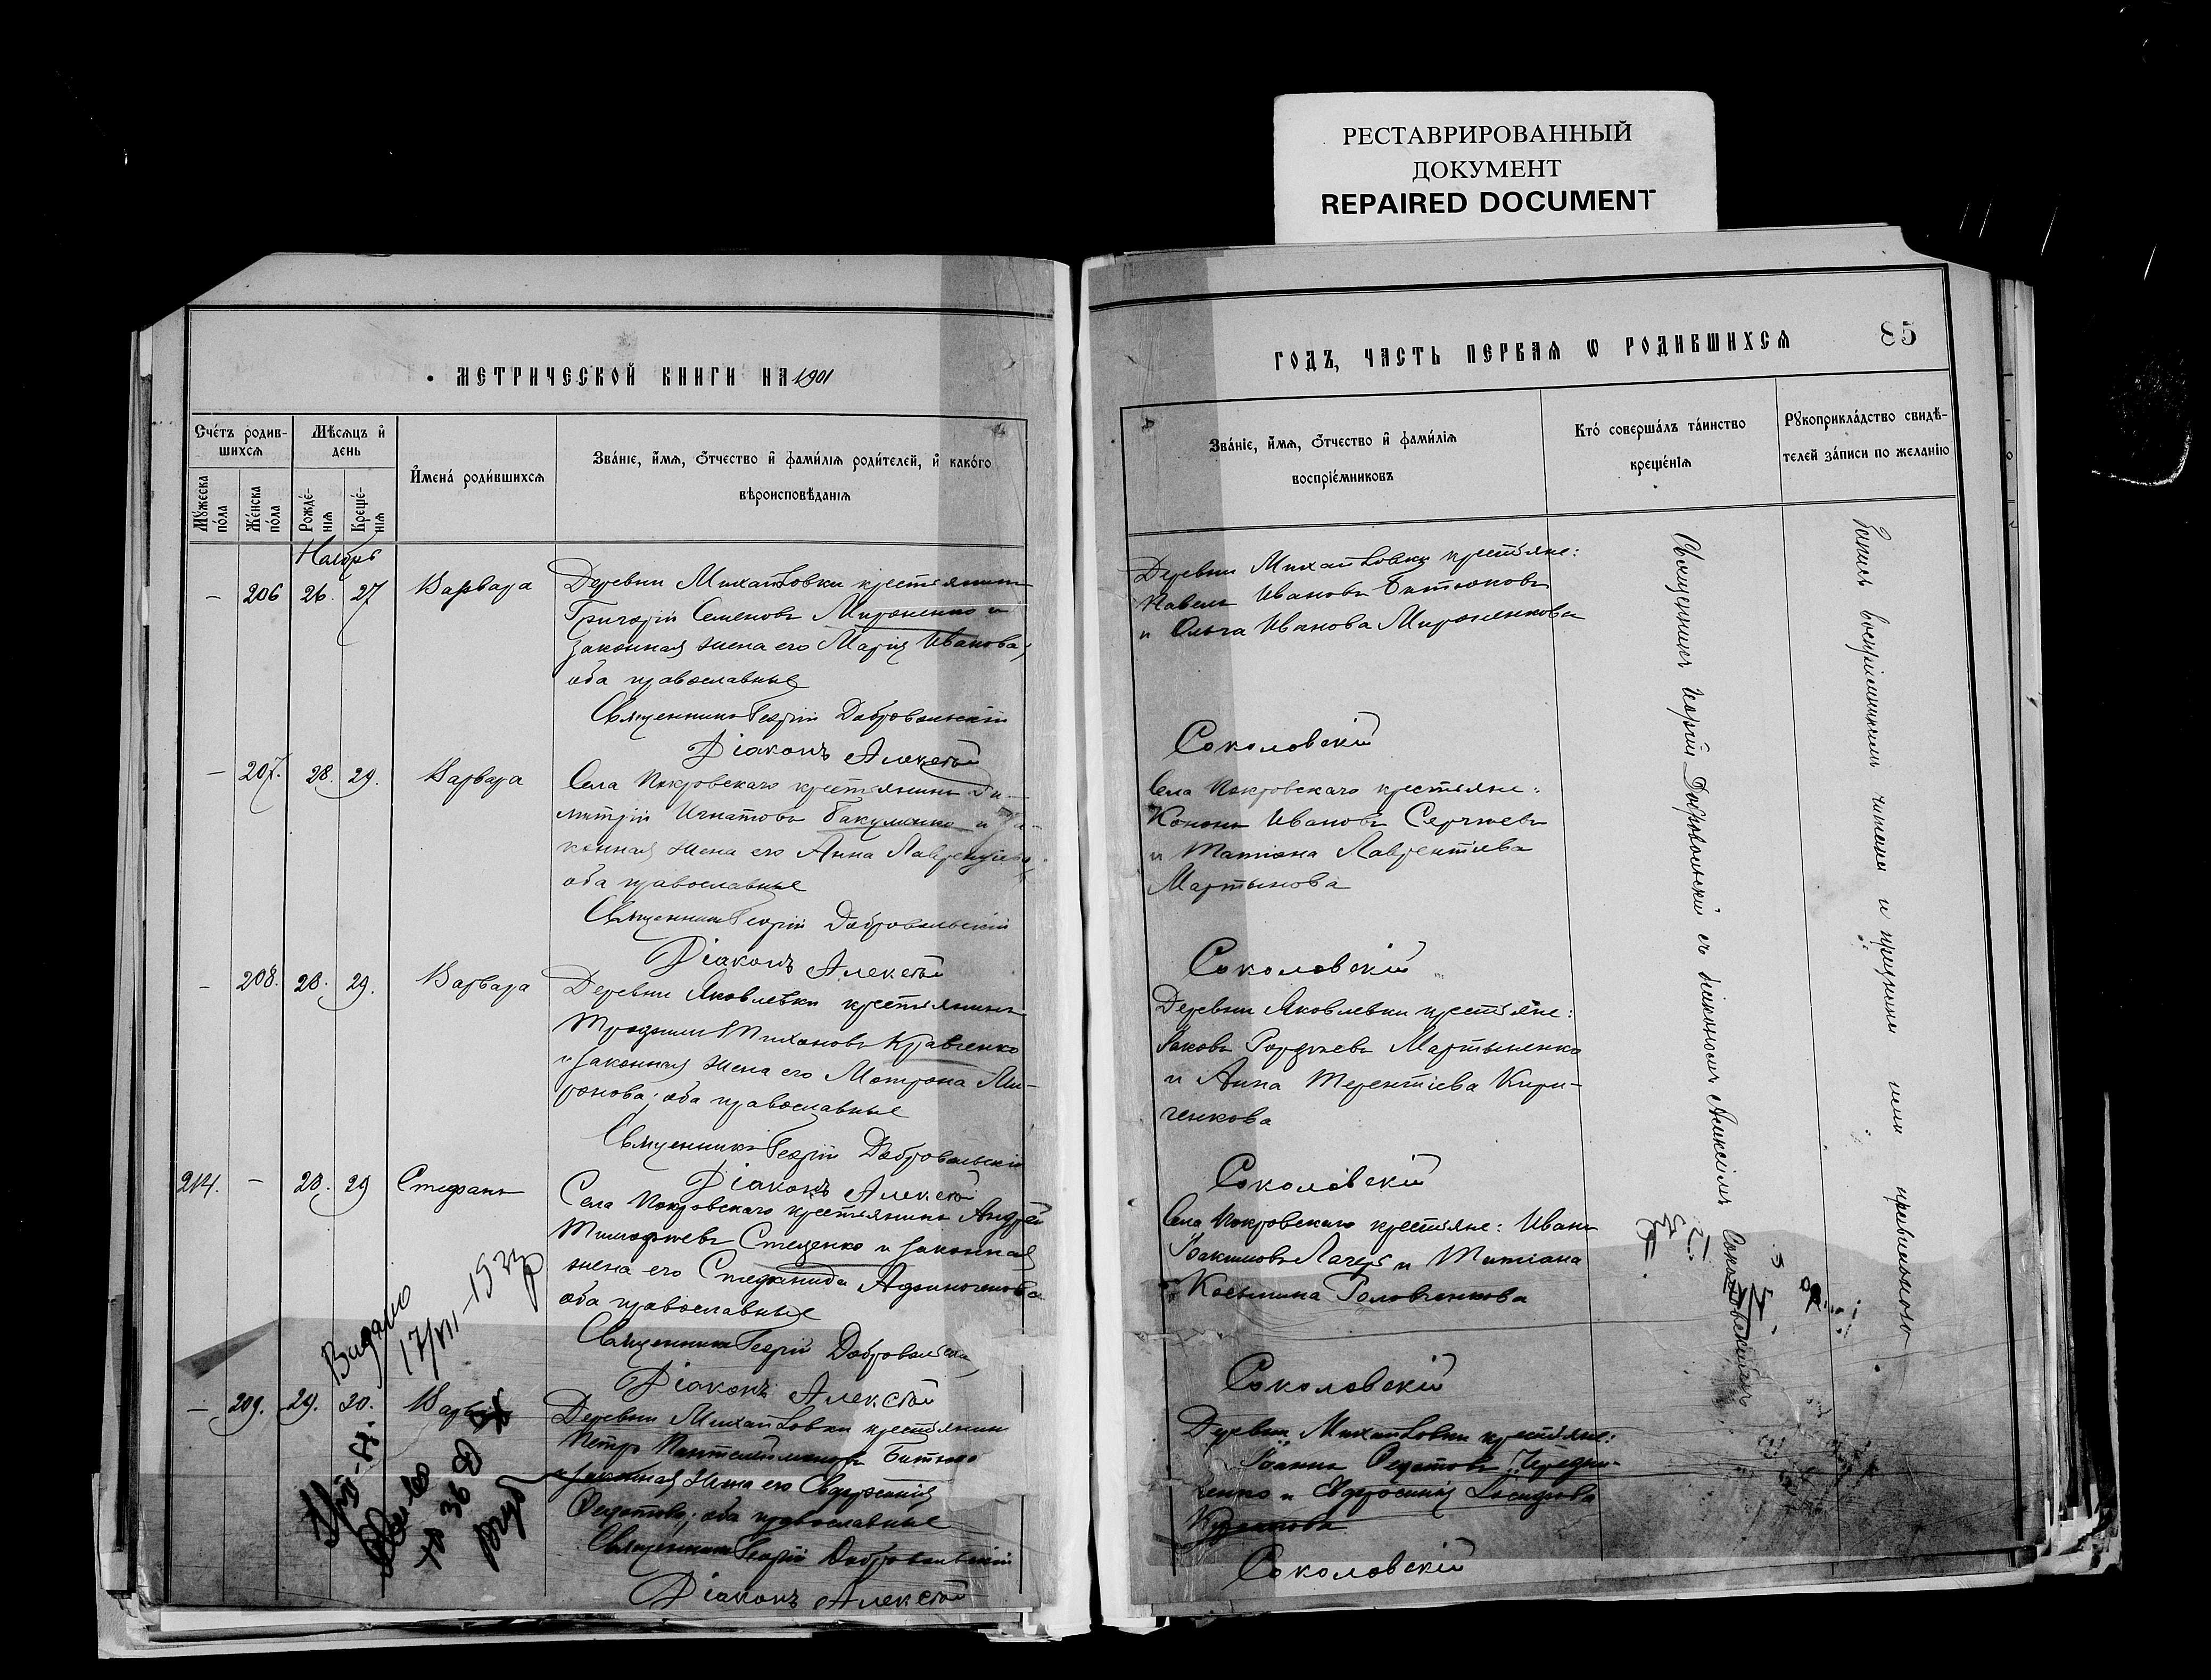 РЕСТАВРИРОВАННЫЙ
ДОКУМЕНТ
REPAIRED DOCUMENT
МЕТРИЧЕСКОЙ КНИГИ НА 1901
Счétъ родив-
шихся
Мѣсяцъ и
день
Мужеска
пола
Женска
пола
Рождé-
нія
Крещé-
нія
Имена родившихся
Званіе, имя, ѻтчество и фамилія родителей, и какого
вѣроисповѣданія
Ноябрь
— 206 26. 27 Варвара
Деревни Михайловки крестьянинъ
Григорій Семеновъ Мироненко и
законная жена его Марія Иванова;
оба православные
Священникъ Георгій Добровольскій
Діаконъ Алексѣй
— 207. 28. 29. Варвара
Села Покровскаго крестьянинъ Ди-
митрій Игнатовъ Бакуменко и за-
конная жена его Анна Лаврентіева,
оба православные
Священникъ Георгій Добровольскій
Діаконъ Алексѣй
— 208. 28. 29. Варвара
Деревни Яковлевки крестьянинъ
Трофимъ Тихоновъ Кравченко
и законная жена его Матрона Ми-
ронова; оба православные
Священникъ Георгій Добровольскій
Діаконъ Алексѣй
214. — 28. 29 Стефанъ
Села Покровскаго крестьянинъ Андрей
Тимофеевъ Стеценко и законная
жена его Стефанида Афиногенова
оба православные
Священникъ Георгій Добровольскій
Діаконъ Алексѣй
Видано
17/VII-1933р
— 209. 29. 30.
Деревни Михайловки крестьянинъ
Петръ Пантелеймоновъ Битюко
и законная жена его Евфросинія
Федотова; оба православные
Священникъ Георгій Добровольскій
Діаконъ Алексѣй
ГОДЪ, ЧАСТЬ ПЕРВАЯ Ѡ РОДИВШИХСЯ
85
Званіе, имя, ѻтчество и фамилія
воспріемниковъ
Кто совершалъ таинство
крещенія
Рукоприкладство свидѣ-
телей записи по желанію
Деревни Михайловки крестьяне:
Павелъ Ивановъ Битюковъ
и Ольга Иванова Мироненкова
Соколовскій
Села Покровскаго крестьяне:
Кононъ Ивановъ Сергѣевъ
и Татіана Лаврентіева
Мартынова
Соколовскій
Деревни Яковлевки крестьяне:
Іаковъ Гордѣевъ Мартыненко
и Анна Терентіева Кири-
ченкова
Соколовскій
Села Покровскаго крестьяне: Иванъ
Іоакимовъ Лагерь и Татіана
Косьмина Головченкова
Соколовскій
Деревни Михайловки крестьяне:
Іоаннъ Федотовъ Чередни-
ченко и Евфросинія
Соколовскій
Священникъ Георгій Добровольскій съ діакономъ Алексіемъ Соколовскимъ
Запись воспріемникамъ читана и